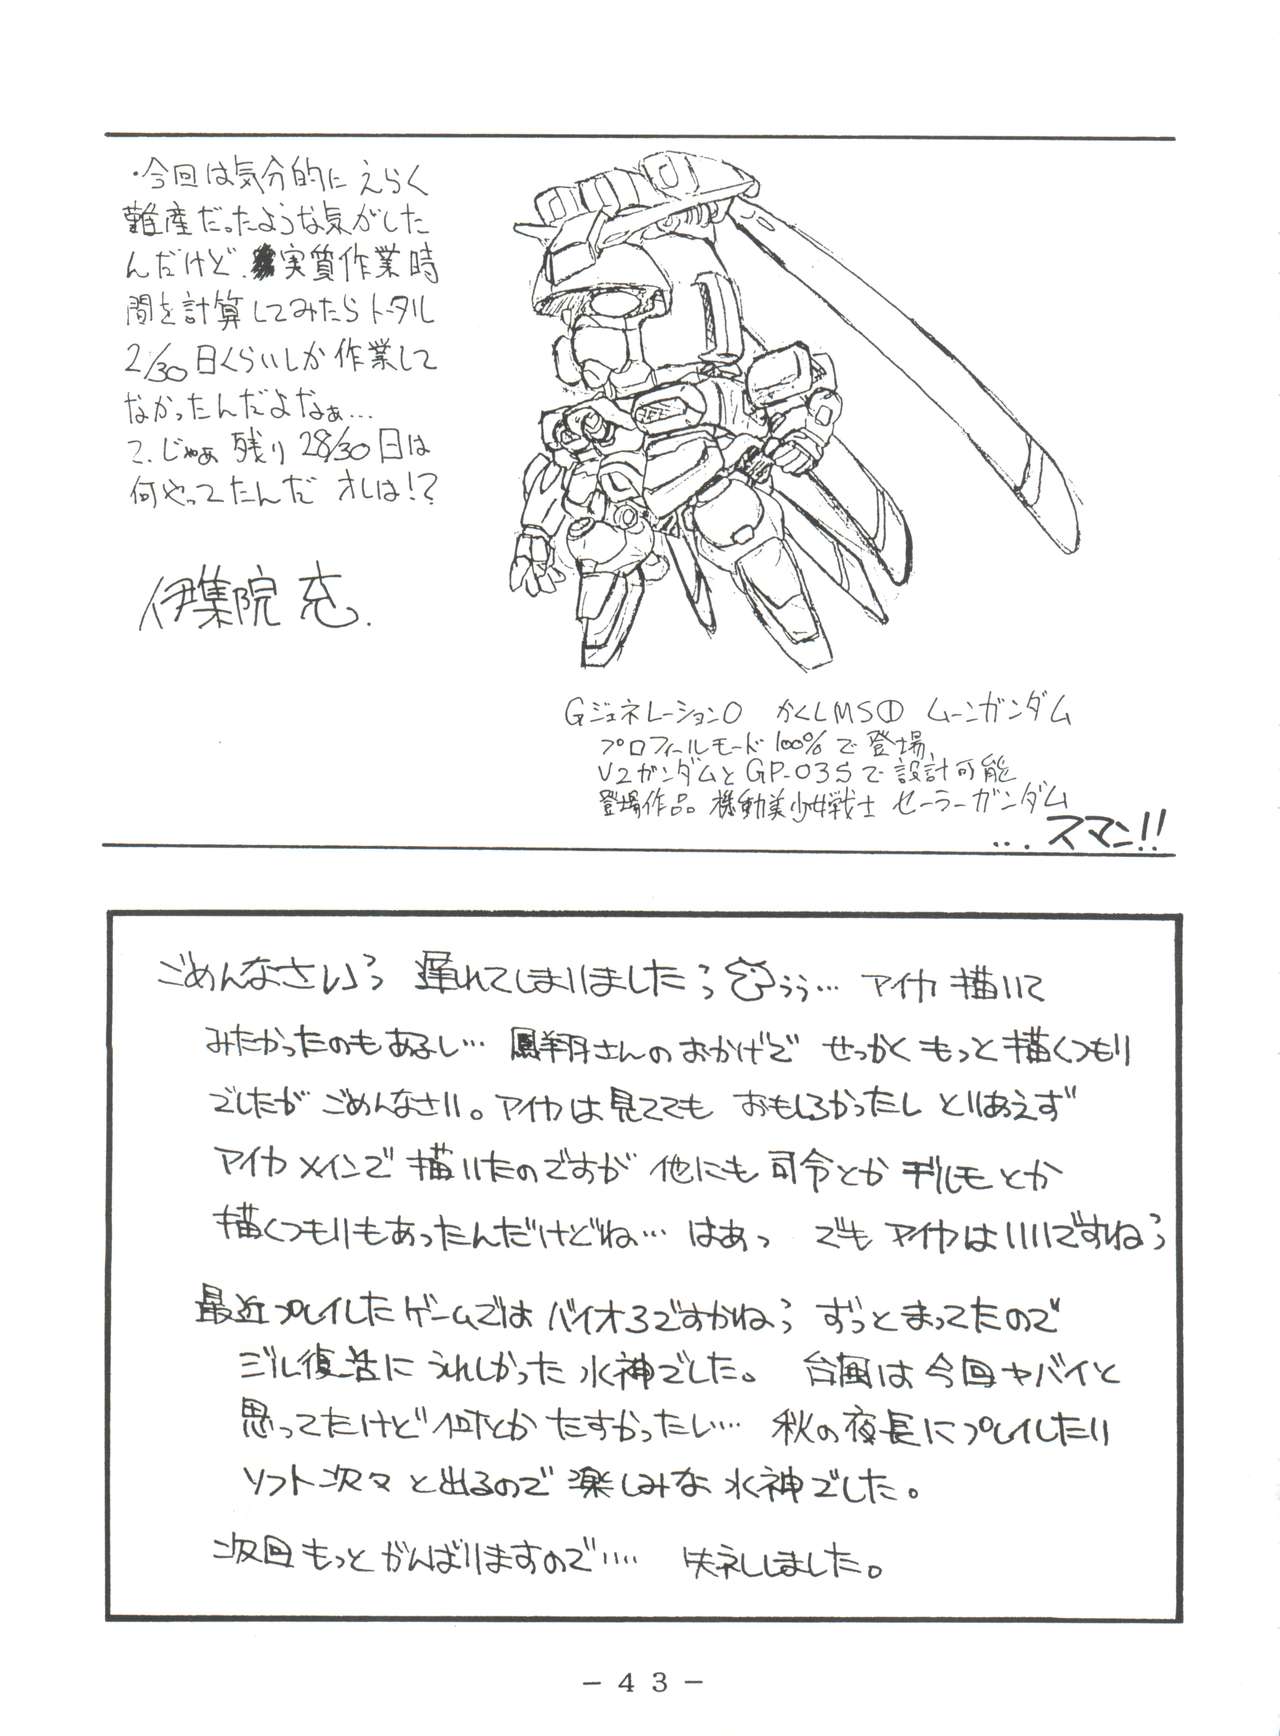 ・今回は気分的にえらく
難産だったような気がした
んだけど、実質作業時
間を計算してみたらトータル
2/30日くらいしか作業して
なかったんだよなぁ…
て、じゃぁ残り28/30日は
何やってたんだオレは!?
伊集院 充。
Gジェネレーション0 かくしMS① ムーンガンダム
プロフィールモード100%で登場、
V2ガンダムとGP-03Sで設計可能
登場作品 機動美少女戦士 セーラーガンダム
...スマン!!
ごめんなさいっ 遅れてしまいましたっ うぅ… アイカ描いて
みたかったのもあるし… 鳳翔さんのおかげで せっかくもっと描くつもり
でしたが ごめんなさい。アイカは見てても おもしろかったし とりあえず
アイカメインで描いたのですが 他にも 司令とか デルモとか
描くつもりもあったんだけどね… はあっ でも アイカはいいですねっ
最近プレイしたゲームでは バイオ3ですかねっ ずっとまってたので
ジル復活に うれしかった 水神でした。 台風は今回ヤバイと
思ってたけど 何とか たすかったし… 秋の夜長にプレイしたり
ソフト次々と出るので 楽しみな 水神でした。
次回もっとがんばりますので‥‥ 失礼しました。
－43－